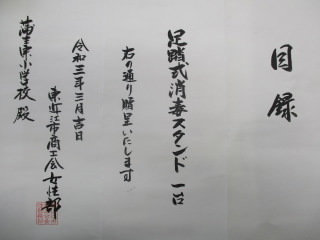 目録
足踏式消毒スタンド 一台
右の通り贈呈いたします
令和三年三月吉日
東近江市商工会女性部
蒲生東小学校 殿